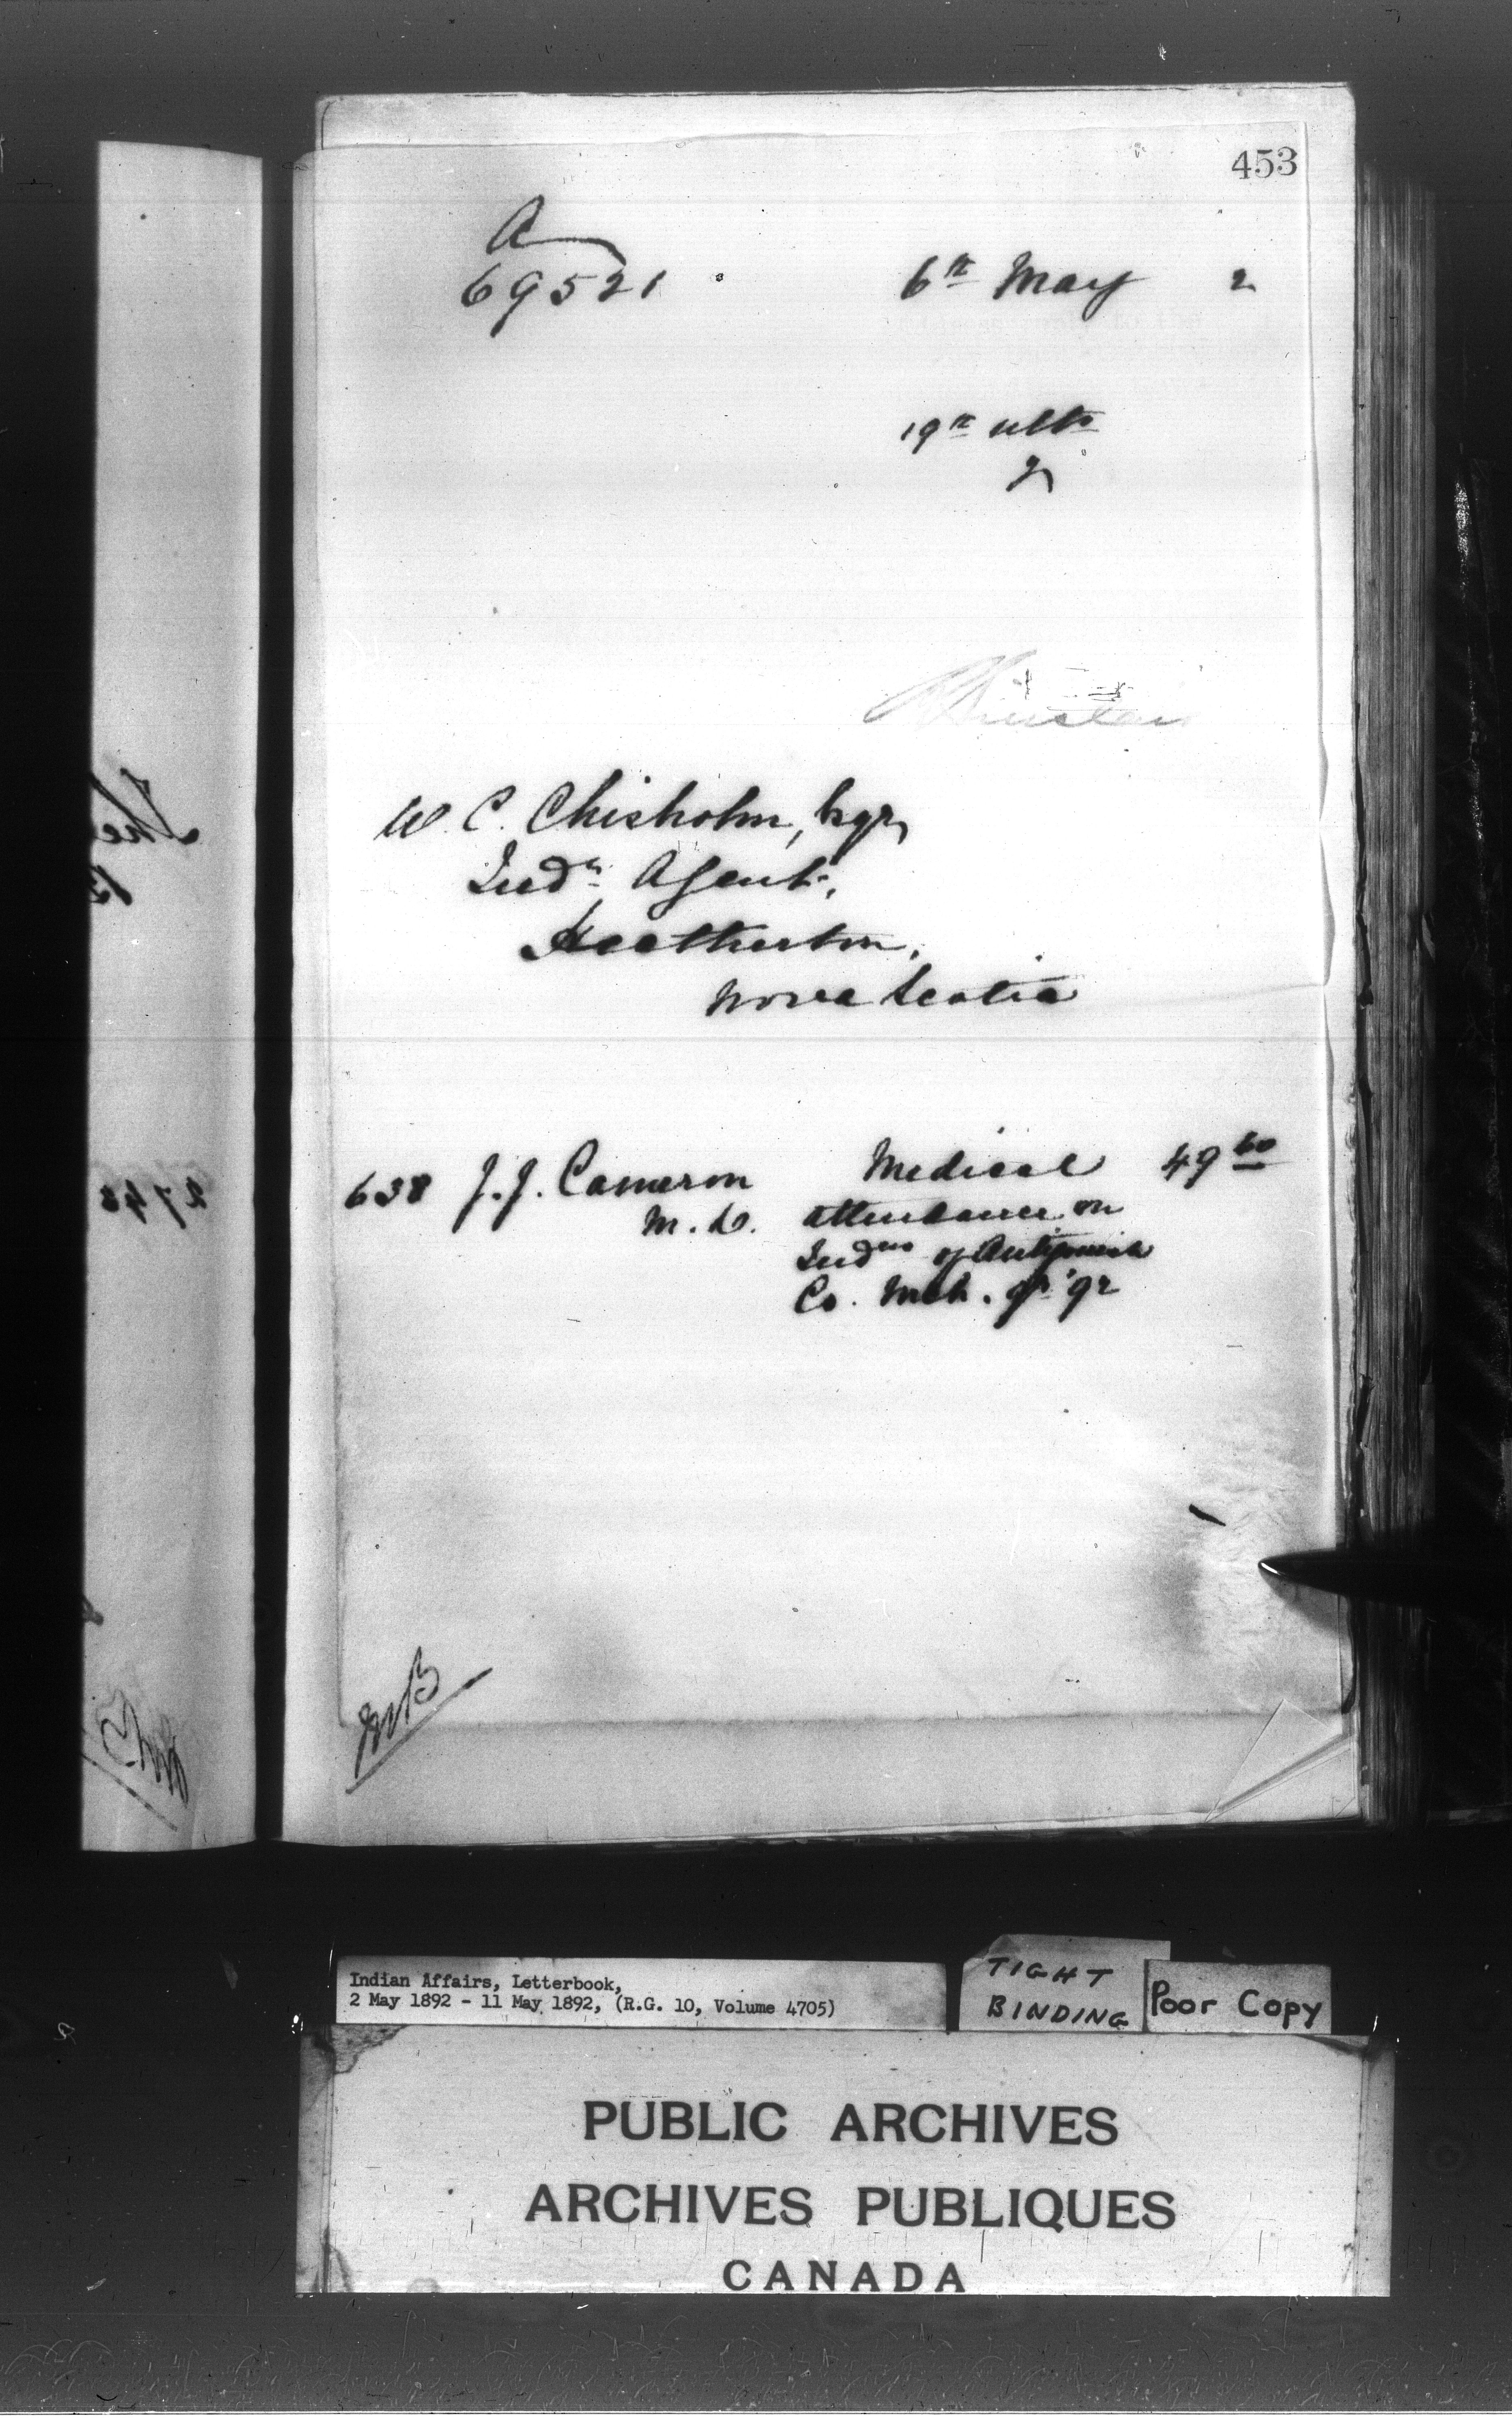 453
A
69521
6th May 2
19th ulto
2
W. C. Chisholm, Esqr,
Indn Agent,
Heatherton,
Nova Scotia
638 J. J. Cameron Medical 49 60
M. D. attendance on
Indns of Antigonish
Co. Mch. qr '92
Indian Affairs, Letterbook,
2 May 1892 - 11 May 1892, (R.G. 10, Volume 4705)
TIGHT
BINDING
Poor Copy
PUBLIC ARCHIVES
ARCHIVES PUBLIQUES
CANADA